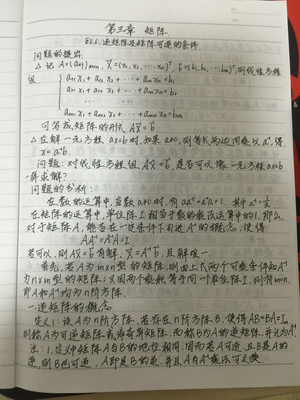 第三章 矩阵
§2.6. 逆矩阵及矩阵可逆的条件
问题的提出:
△ 记 A=(aij)m×n, X=(x1, x2, …, xn)ᵀ, b=(b1, b2, …, bm)ᵀ, 则线性方程
组 { a11x1 + a12x2 + … + a1nxn = b1
a21x1 + a22x2 + … + a2nxn = b2
… …
am1x1 + am2x2 + … + amnxn = bm
可写成矩阵的形式 AX=b
△ 在解一元方程 ax=b 时, 如果 a≠0, 则等式两边同乘以 a⁻¹, 得
x=a⁻¹b.
问题: 对线性方程组 AX=b, 是否可以像一元方程 ax=b 一
样求解?
问题的分析:
在数的运算中, 当数 a≠0 时, 有 aa⁻¹=a⁻¹a=1. 其中 a⁻¹=
在矩阵的运算中, 单位阵 I 相当于数的乘法运算中的 1, 那么,
对于矩阵 A, 能否在一定条件下引进 A⁻¹ 的概念, 使得
AA⁻¹=A⁻¹A=I
若可以, 则 AX=b 有解, X=A⁻¹b, 且解唯一.
首先, 若 A 为 m×n 型的矩阵, 则由上式两个可乘条件知 A⁻¹
为 n×m 型的矩阵; 又因两个乘积等于同一个单位阵 I, 则有 m=n,
即 A 和 A⁻¹ 均为 n 阶方阵.
一. 逆矩阵的概念
定义1: 设 A 为 n 阶方阵, 若存在 n 阶方阵 B, 使得 AB=BA=In
则称 A 为可逆矩阵或非奇异矩阵, 而称 B 为 A 的逆矩阵, 并记为 A⁻¹
注: 1. 定义中矩阵 A 与 B 的地位相同, 因而若 A 可逆, 且 B 是 A 的
逆, 则 B 也可逆, A 即是 B 的逆, 并且 A 与 A⁻¹ 乘法可交换